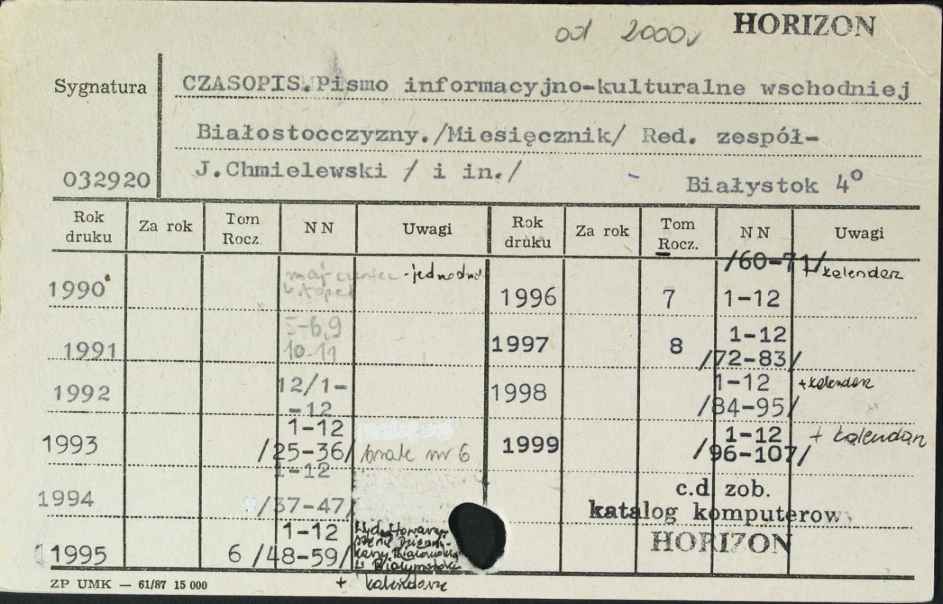 od 2000 HORIZON
Sygnatura
CZASOPIS.Pismo informacyjno-kulturalne wschodniej
Białostocczyzny./Miesięcznik/ Red. zespół-
J.Chmielewski / i in./
032920
Białystok 4°
Rok druku Za rok Tom Rocz. NN Uwagi Rok druku Za rok Tom Rocz. NN Uwagi
1990 maj-czerwiec - jednodn.
listopad
1991 5-6,9
10-11
1992 12/1-
-12
1993 1-12
/25-36/ brak nr 6
1994 1-12
/37-47/
1995 6 1-12
/48-59/
Białymstoku
+ kalendarze
/60-71/ + kalendarz
1996 7 1-12
1997 8 1-12
/72-83/
1998 1-12 + kalendarz
/84-95/
1999 1-12 + kalendarz
/96-107/
c.d. zob.
katalog komputerow
HORIZON
ZP UMK — 61/87 15 000